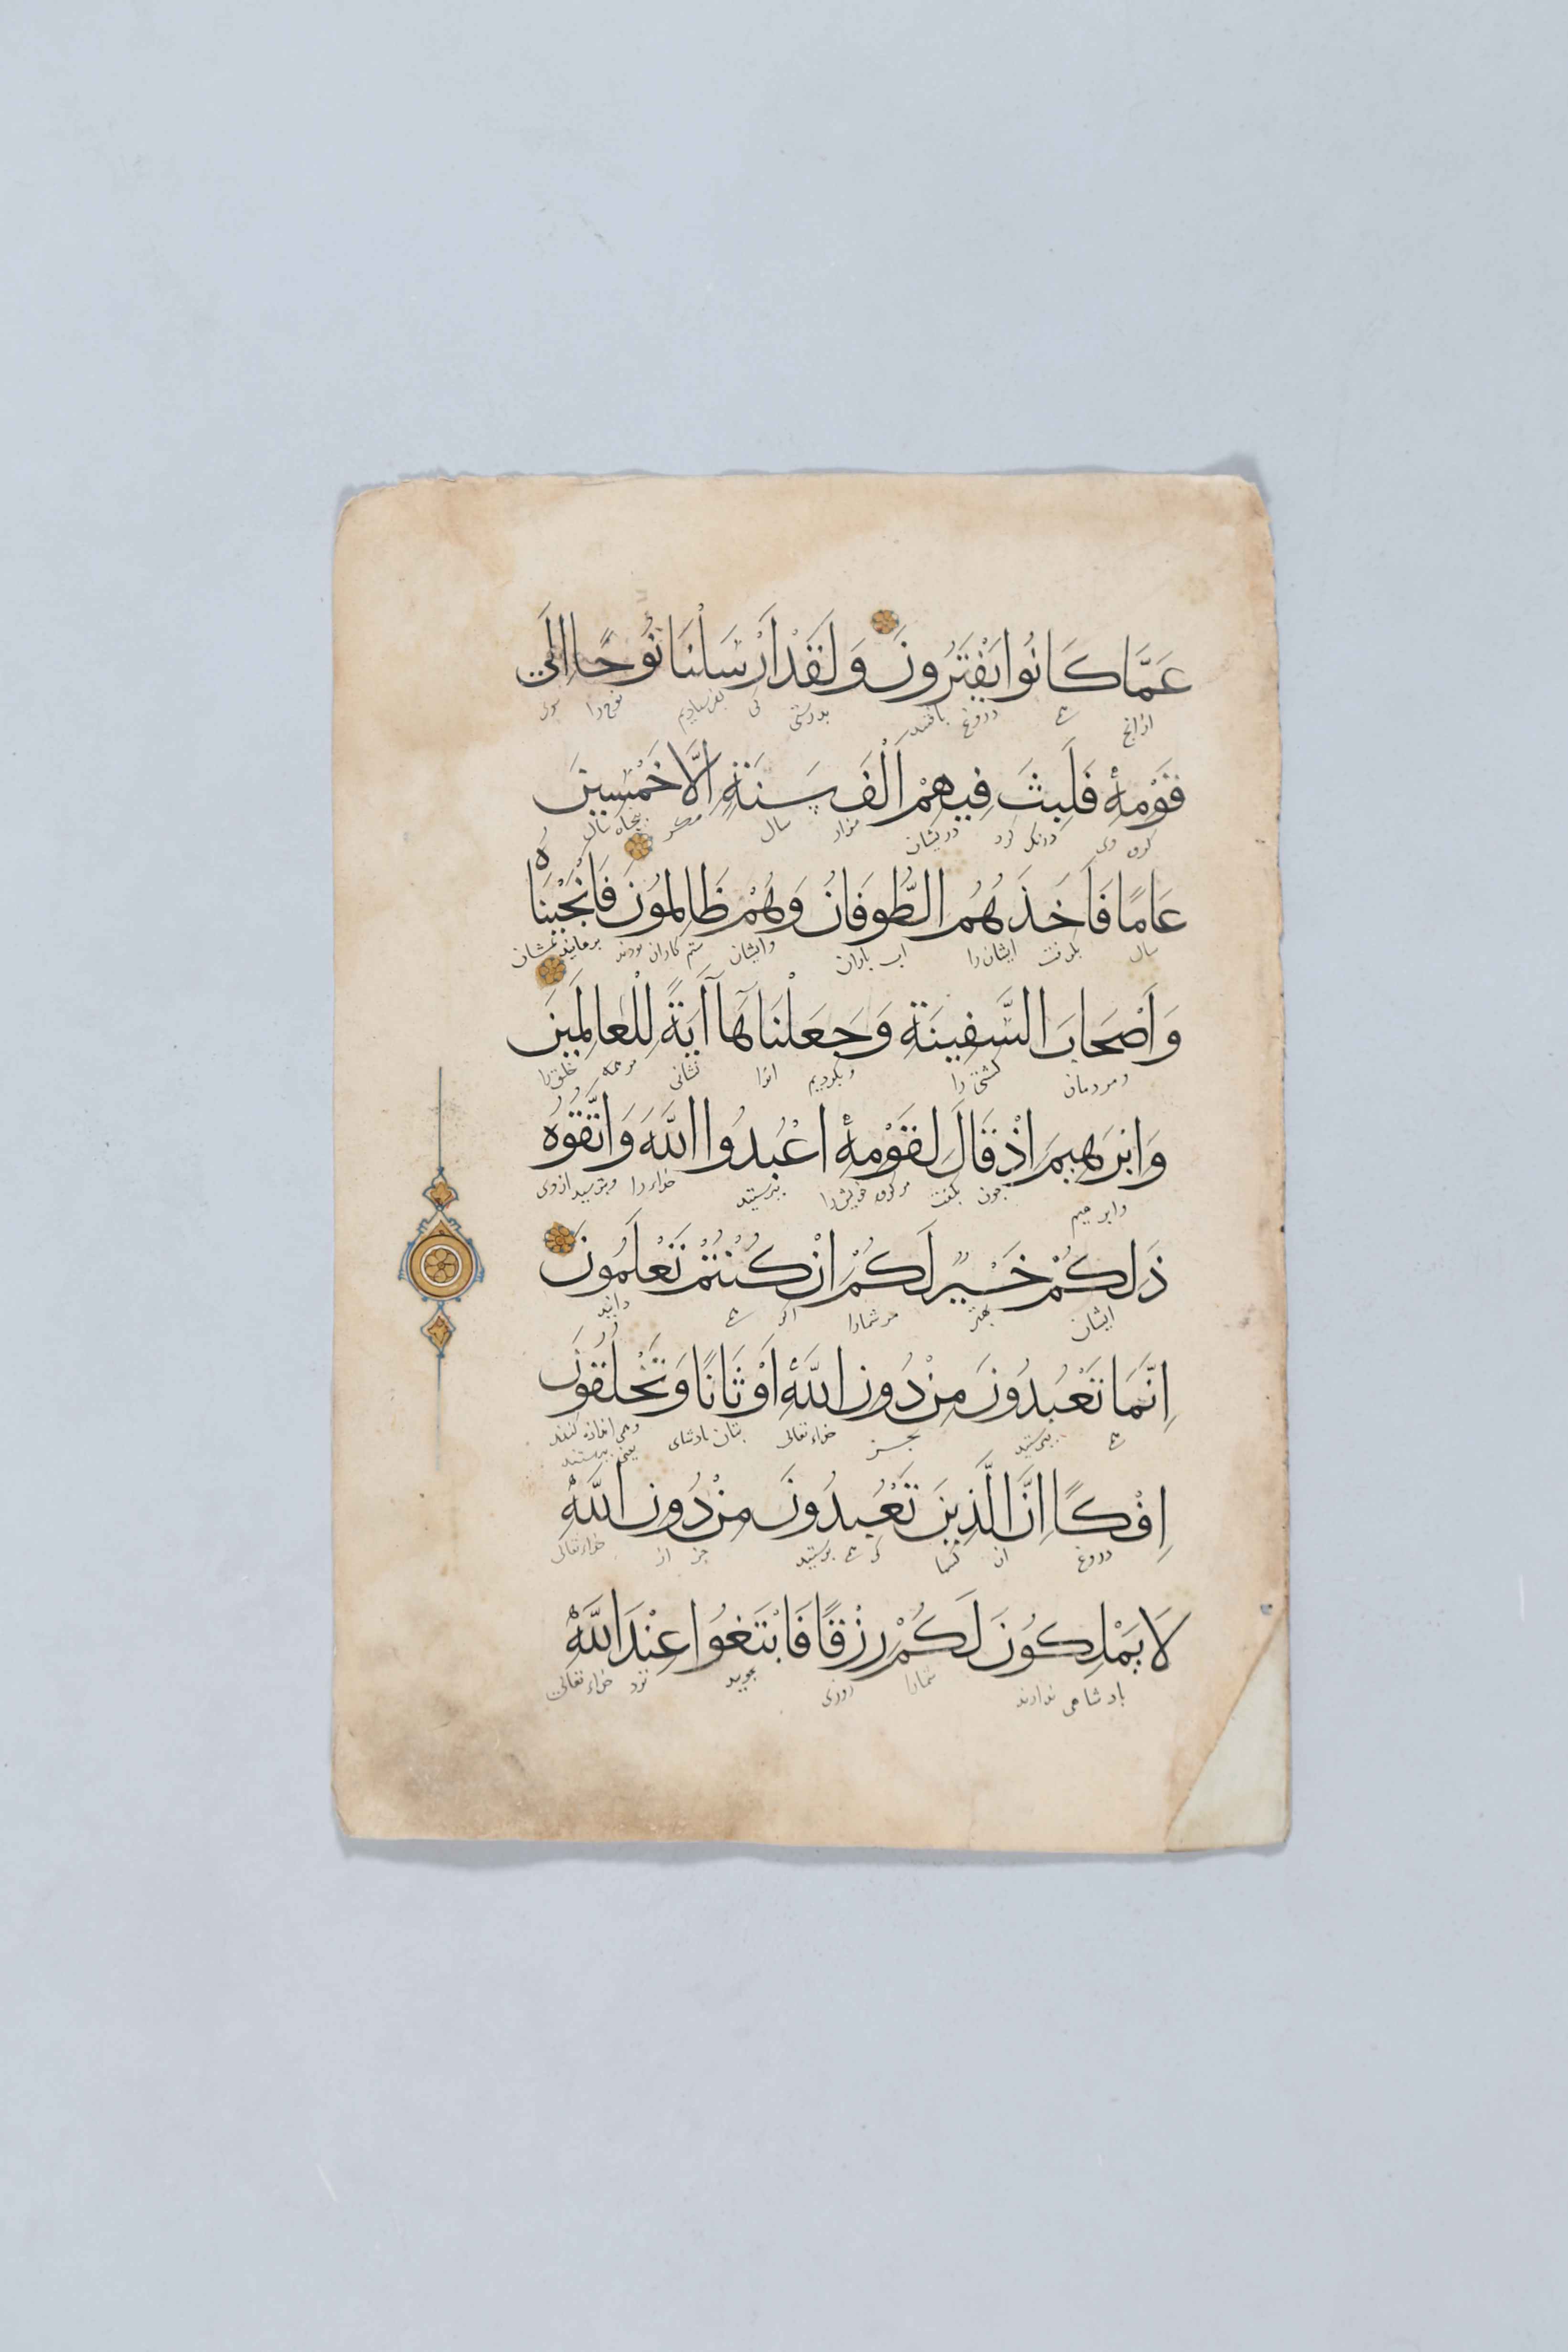 عَمَّا كَانُوا يَفْتَرُونَ وَلَقَدْ اَرْسَلْنَا نُوحًا اِلَى
ازانچ دروغ بافتند بدرستی کی بفرستادیم نوح را سوی
قَوْمِهٖ فَلَبِثَ فِيهِمْ اَلْفَ سَنَةٍ اِلَّا خَمْسِينَ
کروه وی درنک کرد در یشان هزار سال مکر پنجاه سال
عَامًا فَاَخَذَهُمُ الطُّوفَانُ وَهُمْ ظَالِمُونَ فَاَنْجَيْنَاهُ
سال بکرفت ایشان را اب باران وایشان ستم کاران بودند برهانیدمشان
وَاَصْحَابَ السَّفِينَةِ وَجَعَلْنَاهَآ اٰيَةً لِلْعَالَمِينَ
ومردمان کشتی را وبکردیم انرا نشانی مرهمه خلق را
وَاِبْرَهِيمَ اِذْ قَالَ لِقَوْمِهٖ اعْبُدُوا اللَّهَ وَاتَّقُوهُ
وابرهیم چون بکفت مرکروه خویش را بپرستید خدای را وبترسید ازوی
ذَلِكُمْ خَيْرٌ لَكُمْ اِنْ كُنْتُمْ تَعْلَمُونَ
ایشان بهتر مرشمارا اکر دانید
اِنَّمَا تَعْبُدُونَ مِنْ دُونِ اللَّهِ اَوْثَانًا وَتَخْلُقُونَ
بپرستید بجز خدای تعالی بتان
اِفْكًا اِنَّ الَّذِينَ تَعْبُدُونَ مِنْ دُونِ اللَّهِ
دروغ ان کسها کی پرستید جز از خدای تعالی
لَا يَمْلِكُونَ لَكُمْ رِزْقًا فَابْتَغُوا عِنْدَ اللَّهِ
بادشاهی ندارند شمارا روزی بجویید نزد خدای تعالی